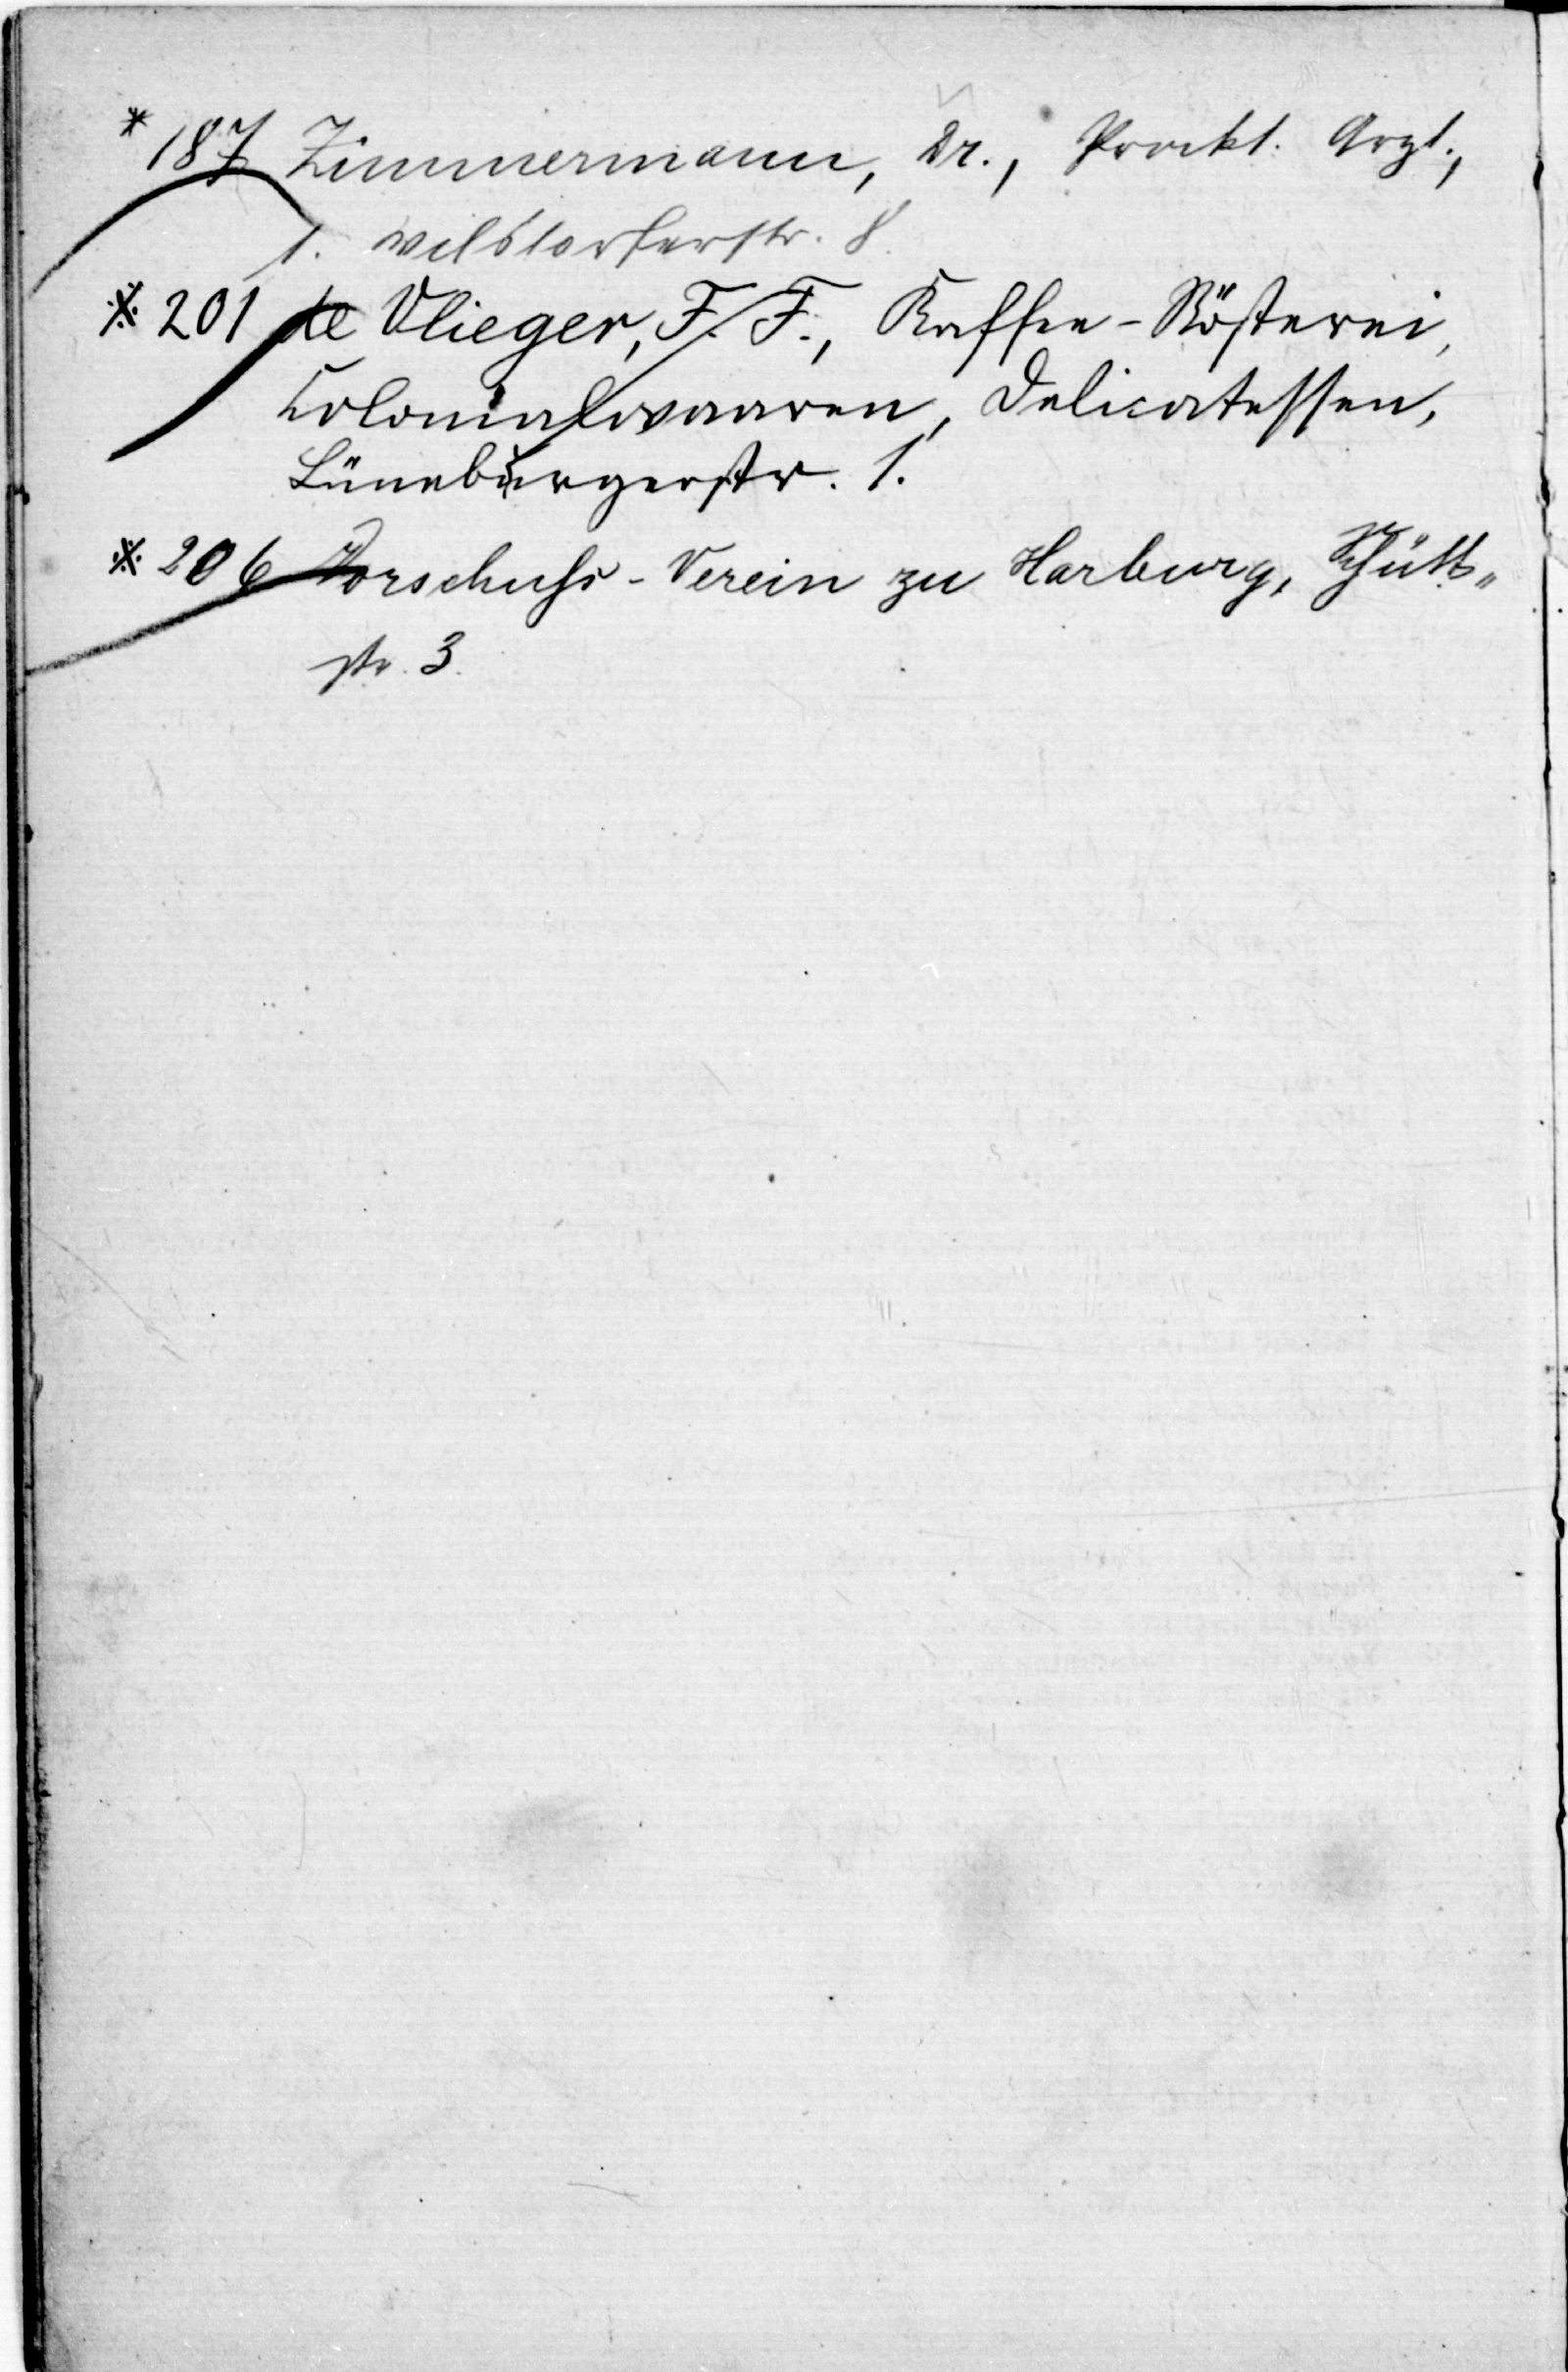 * 187 Zimmermann, Dr., Prackt. Arzt.,
1. Wilstorferstr. 8.
※ 201 de Vlieger, F. F., Kaffee-Rösterei,
Colonialwaaren, Delicatessen,
Lüneburgerstr. 1.
※ 206 Vorschuss-Verein zu Harburg, Schütt„
str. 3.